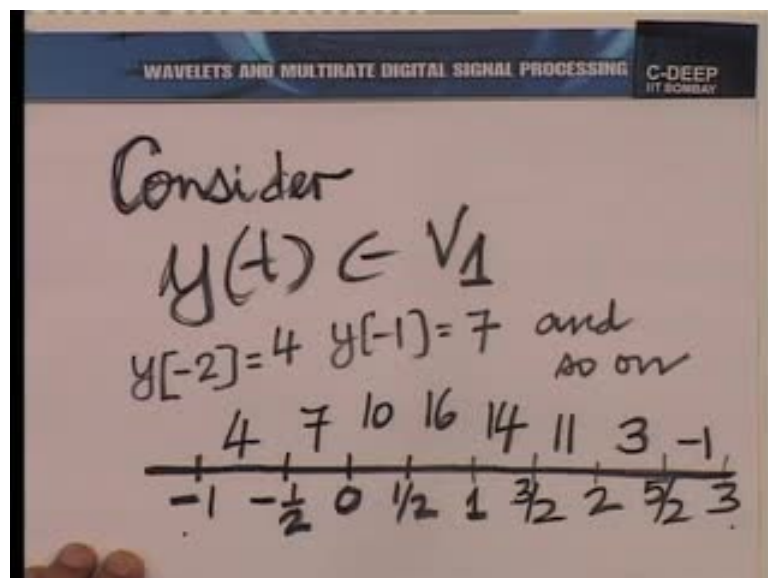 WAVELETS AND MULTIRATE DIGITAL SIGNAL PROCESSING
C-DEEP
IIT BOMBAY
Consider
y(t) ∈ V1
y[-2]=4 y[-1]=7 and
so on
4 7 10 16 14 11 3 -1
-1 -1/2 0 1/2 1 3/2 2 5/2 3